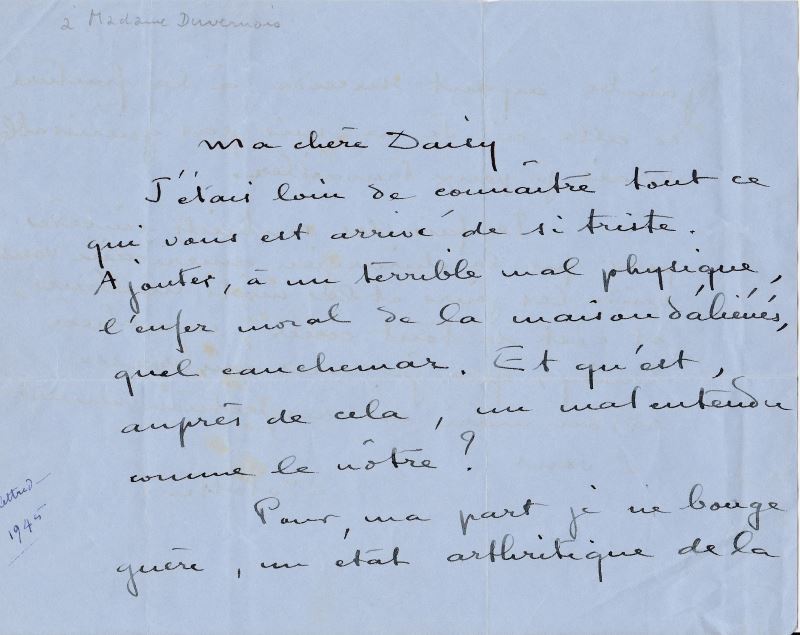 à Madame Duvernois
Ma chère Daisy
J'étais loin de connaître tout ce
qui vous est arrivé de si triste.
Ajouter, à un terrible mal physique,
l'enfer moral de la maison d'aliénés,
quel cauchemar. Et qu'est,
auprès de cela, un malentendu
comme le nôtre ?
Pour, ma part je ne bouge
guère, un état arthritique de la
1945